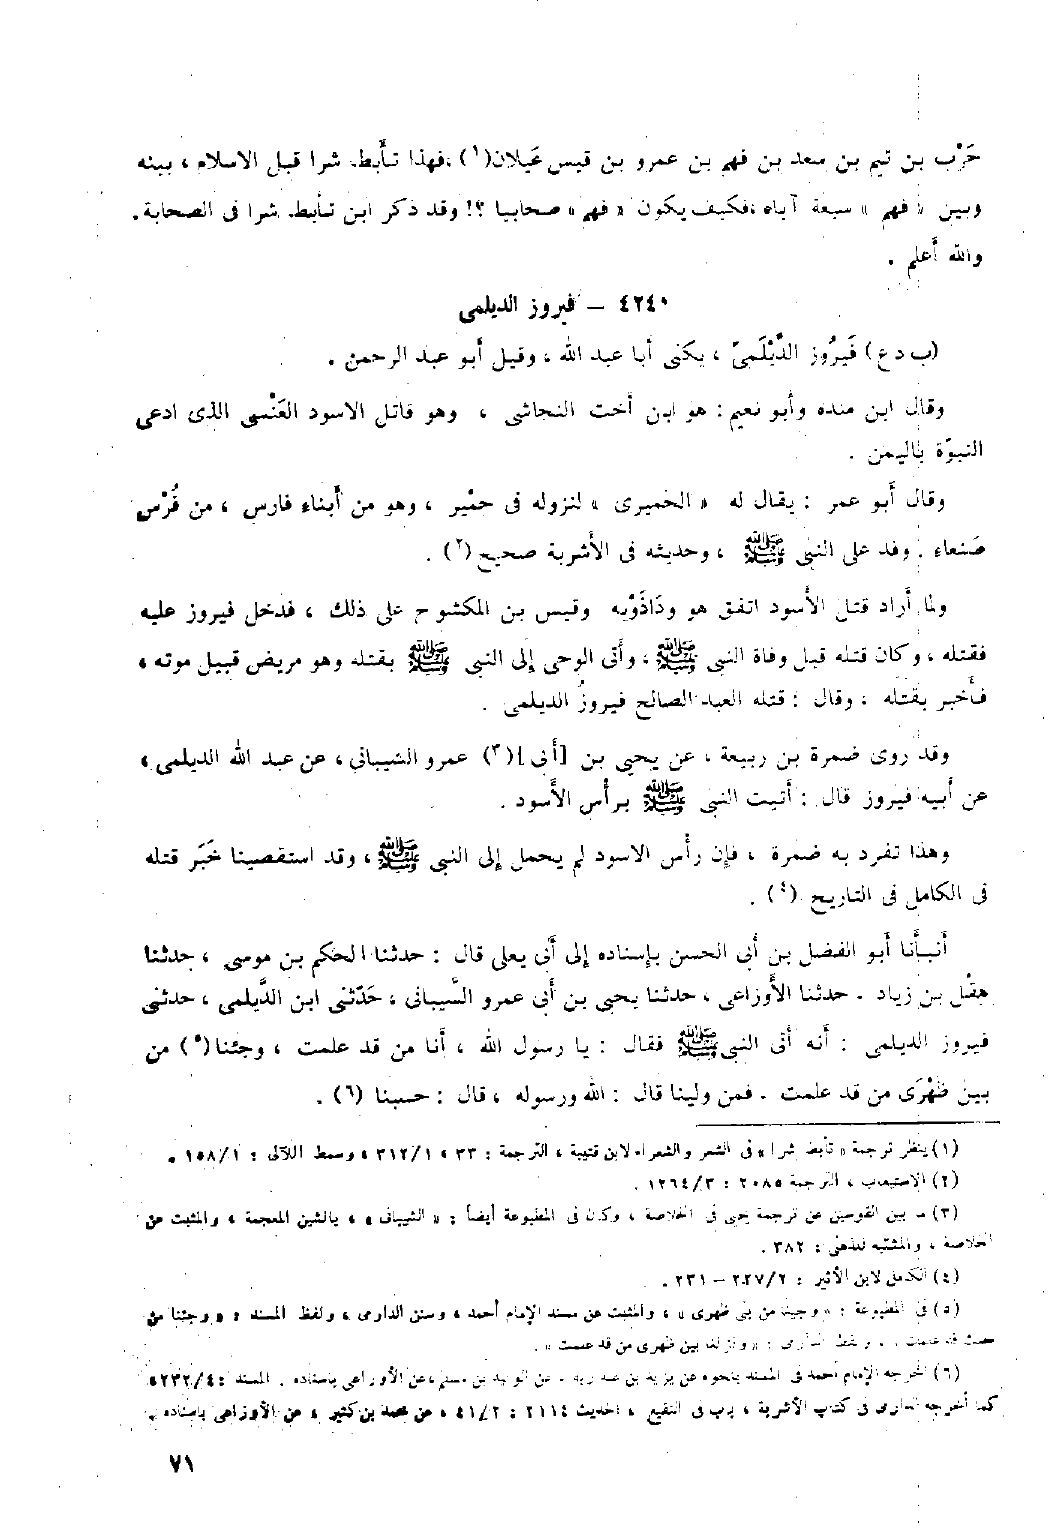 حَرْب بن تيم بن سعد بن فهم بن عمرو بن قيس عَيلان(١) ، فهذا تأَبط شرا قبل الاسلام ، بينه
وبين « فهم » سبعة آباه ، فكيف يكون « فهم » صحابيا ؟! وقد ذكر ابن تأبط شرا فى الصحابة .
والله أَعلم .
٤٢٤٠ – فيروز الديلمى
(ب د ع) فَيرُوز الدَّيْلَمىّ ، يكنى أبا عبد الله ، وقيل أبو عبد الرحمن .
وقال ابن منده وأبو نعيم : هو ابن أخت النجاشى ، وهو قاتل الاسود العَنْسى الذى ادعى
النبوّة باليمن .
وقال أَبو عمر : يقال له « الحميرى » لنزوله فى حمْير ، وهو من أَبناء فارس ، من فُرْس
صَنعاء . وفد على النبى ﷺ ، وحديثه فى الأَشربة صحيح (٢) .
ولما أَراد قتل الأَسود اتفق هو ودَاذَوَيْه وقيس بن المكشوح على ذلك ، فدخل فيروز عليه
فقتله ، وكان قتله قبل وفاة النبى ﷺ ، وأَتى الوحى إلى النبى ﷺ بقتله وهو مريض قبيل موته ،
فأَخبر بقتله ، وقال : قتله العبد الصالح فيروزُ الديلمى .
وقد روى ضمرة بن ربيعة ، عن يحيى بن [أَبى](٣) عمرو الشيبانى ، عن عبد الله الديلمى ،
عن أَبيه فيروز قال : أَتيت النبى ﷺ برأْس الأَسود .
وهذا تفرد به ضمرة ، فإن رأْس الاسود لم يحمل إلى النبى ﷺ ، وقد استقصينا خَبَر قتله
فى الكامل فى التاريخ (٤) .
أَنبأَنا أَبو الفضل بن أَبى الحسن بإسناده إلى أَبى يعلى قال : حدثنا الحكم بن موسى ، حدثنا
هِقْل بن زياد . حدثنا الأَوزاعى ، حدثنا يحيى بن أَبى عمرو السَّيبانى ، حَدّثنى ابن الدَّيلمى ، حدثنى
فيروز الديلمى : أَنه أَتى النبى ﷺ فقال : يا رسول الله ، أَنا من قد علمت ، وجئنا(٥) من
بين ظَهْرَى من قد علمت . فمن ولينا قال : الله ورسوله ، قال : حسبنا (٦) .
(١) ينظر ترجمة « تأبط شرا » فى الشعر والشعراء لابن قتيبة ، الترجمة : ٣٣ ، ٣١٢/١ ، وسمط اللآلى : ١٥٨/١ .
(٢) الاستيعاب ، الترجمة ٢٠٨٥ : ١٢٦٤/٣ .
(٣) ما بين القوسين عن ترجمة يحيى فى الخلاصة ، وكان فى المطبوعة أيضاً : « الشيبانى » ، بالشين المعجمة ، والمثبت عن
الخلاصة ، والمشتبه للذهبى : ٣٨٢ .
(٤) الكامل لابن الأثير : ٢٢٧/٢ – ٢٣١ .
(٥) فى المطبوعة : « وجينا من بنى ظهرى » ، والمثبت عن مسند الإمام أحمد ، وسنن الدارمى ، ولفظ المسند : « وجئنا من
حيث قد علمت » . ولفظ الدارمى : « ونزلنا بين ظهرى من قد علمت » .
(٦) أخرجه الإمام أحمد فى المسند بنحوه عن يزيد بن عبد ربه ، عن الوليد بن مسلم ، عن الأوزاعى باسناده . المسند : ٢٣٢/٤
كما أخرجه الدارمى فى كتاب الأشربة ، باب فى النقيع ، الحديث ٢١١٤ : ٤١/٢ ، عن محمد بن كثير ، عن الأوزاعى باسناده .
٧١